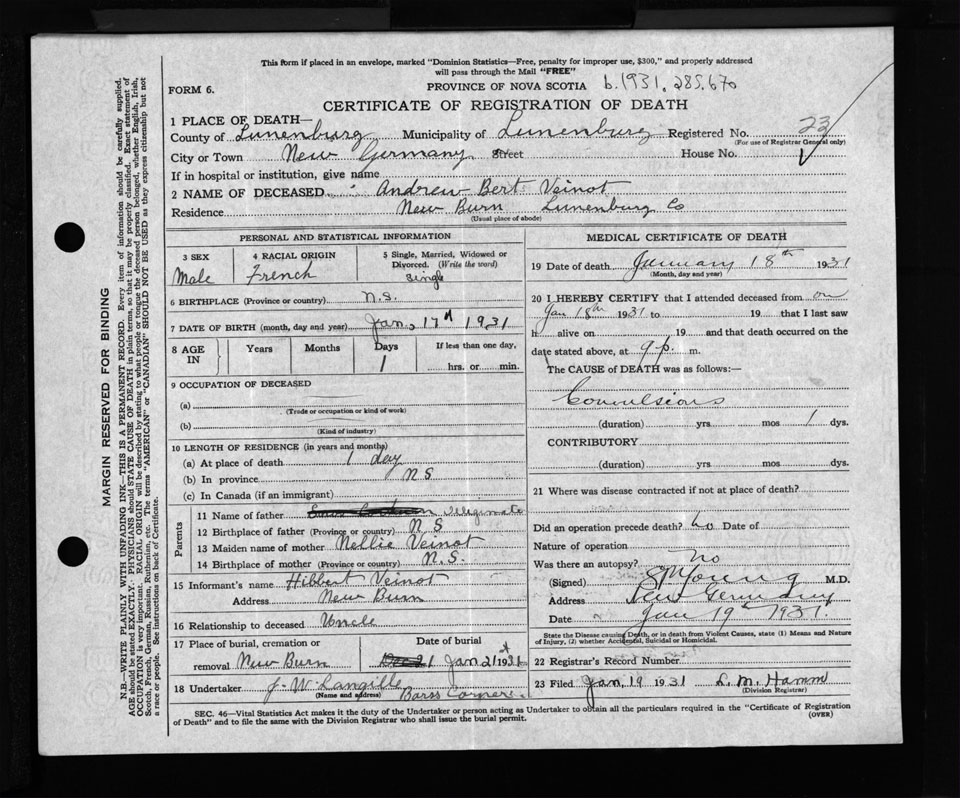 This form if placed in an envelope, marked "Dominion Statistics—Free, penalty for improper use, $300," and properly addressed
will pass through the Mail "FREE"
FORM 6.
PROVINCE OF NOVA SCOTIA b.1931.
CERTIFICATE OF REGISTRATION OF DEATH
1 PLACE OF DEATH—
County of Lunenburg Municipality of Lunenburg Registered No. 23
(For use of Registrar General only)
City or Town New Germany Street House No.
If in hospital or institution, give name
2 NAME OF DECEASED Andrew Bert Veinot
Residence New Burn Lunenburg Co
(Usual place of abode)
PERSONAL AND STATISTICAL INFORMATION
3 SEX 4 RACIAL ORIGIN 5 Single, Married, Widowed or
Divorced. (Write the word)
Male French Single
6 BIRTHPLACE (Province or country) N.S.
7 DATE OF BIRTH (month, day and year) Jan, 17th 1931
8 AGE IN Years Months Days If less than one day,
1 hrs. or min.
9 OCCUPATION OF DECEASED
(a)
(Trade or occupation or kind of work)
(b)
(Kind of industry)
10 LENGTH OF RESIDENCE (in years and months)
(a) At place of death 1 day
(b) In province N S
(c) In Canada (if an immigrant)
Parents
11 Name of father Illegimate
12 Birthplace of father (Province or country) N S
13 Maiden name of mother Nellie Veinot
14 Birthplace of mother (Province or country) N.S.
15 Informant's name Hibbert Veinot
Address New Burn
16 Relationship to deceased Uncle
17 Place of burial, cremation or Date of burial
removal New Burn Jan 21st 1931
18 Undertaker J. W. Langille Barss Corner
(Name and address)
MEDICAL CERTIFICATE OF DEATH
19 Date of death January 18th 1931
(Month, day and year)
20 I HEREBY CERTIFY that I attended deceased from on
Jan 18th 1931 to 19 that I last saw
h alive on 19 and that death occurred on the
date stated above, at 9 p. m.
The CAUSE of DEATH was as follows:—
Convulsions
(duration) yrs. mos 1 dys.
CONTRIBUTORY
(duration) yrs. mos. dys.
21 Where was disease contracted if not at place of death?
Did an operation precede death? no Date of
Nature of operation
Was there an autopsy? no
(Signed) Young M.D.
Address New Germany
Date Jan 19th 1931
State the Disease causing Death, or in death from Violent Causes, state (1) Means and Nature
of Injury, (2) whether Accidental, Suicidal or Homicidal.
22 Registrar's Record Number
23 Filed Jan, 19 1931 L. M. Hamm
(Division Registrar)
SEC. 46—Vital Statistics Act makes it the duty of the Undertaker or person acting as Undertaker to obtain all the particulars required in the "Certificate of Registration
of Death" and to file the same with the Division Registrar who shall issue the burial permit.
(OVER)
MARGIN RESERVED FOR BINDING
N.B.—WRITE PLAINLY WITH UNFADING INK—THIS IS A PERMANENT RECORD. Every item of information should be carefully supplied.
AGE should be stated EXACTLY. PHYSICIANS should STATE CAUSE OF DEATH in plain terms, so that it may be properly classified. Exact statement of
OCCUPATION is very important. RACIAL ORIGIN will be described by stating to what people or tongue the deceased person belonged, whether English, Irish,
Scotch, French, German, Russian, Ruthenian, etc. The terms "AMERICAN" or "CANADIAN" SHOULD NOT BE USED as they express citizenship but not
a race or people. See instructions on back of Certificate.